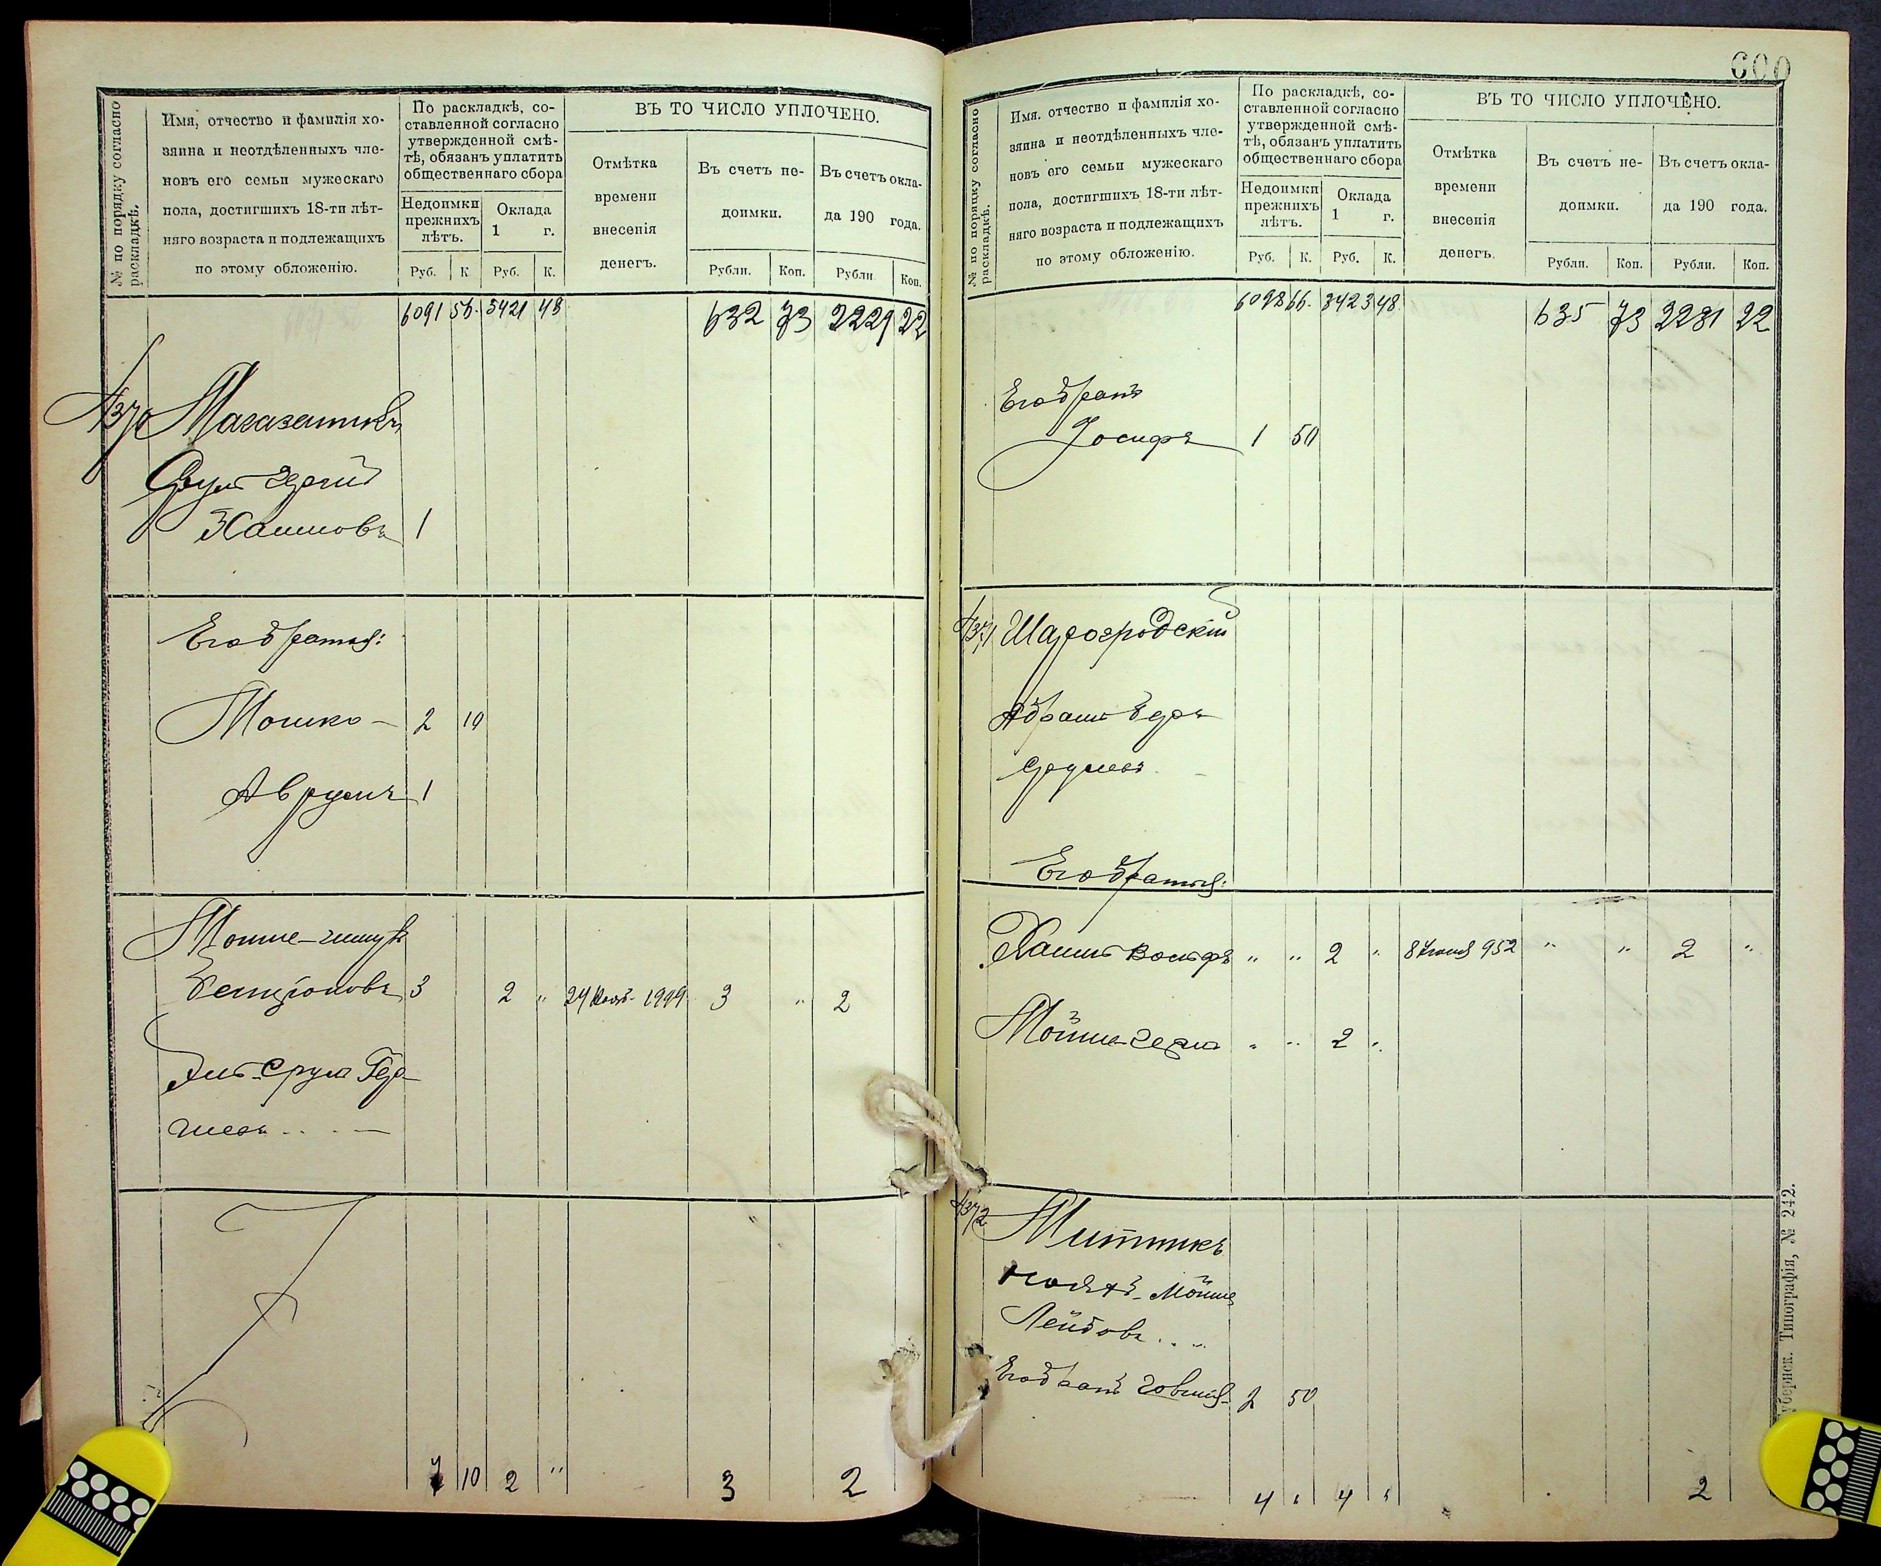 № по порядку согласно
раскладкѣ.
Имя, отчество и фамилія хо-
зяина и неотдѣленныхъ чле-
новъ его семьи мужескаго
пола, достигшихъ 18-ти лѣт-
няго возраста и подлежащихъ
по этому обложенію.
По раскладкѣ, со-
ставленной согласно
утвержденной смѣ-
тѣ, обязанъ уплатить
общественнаго сбора
Недоимки
прежнихъ
лѣтъ.
Оклада
1 г.
Руб. К. Руб. К.
ВЪ ТО ЧИСЛО УПЛОЧЕНО.
Отмѣтка
времени
внесенія
денегъ.
Въ счетъ не-
доимки.
Въ счетъ окла-
да 190 года.
Рубли. Коп. Рубли Коп.
6091 56 3421 48 632 73 2229 22
Магазаникъ
Хаимовъ 1
Его братья:
Мошко - 2 10
Аврумъ 1
3 2 " 24 1909 3 " 2
7 10 2 " 3 2
600
№ по порядку согласно
раскладкѣ.
Имя, отчество и фамилія хо-
зяина и неотдѣленныхъ чле-
новъ его семьи мужескаго
пола, достигшихъ 18-ти лѣт-
няго возраста и подлежащихъ
по этому обложенію.
По раскладкѣ, со-
ставленной согласно
утвержденной смѣ-
тѣ, обязанъ уплатить
общественнаго сбора
Недоимки
прежнихъ
лѣтъ.
Оклада
1 г.
Руб. К. Руб. К.
ВЪ ТО ЧИСЛО УПЛОЧЕНО.
Отмѣтка
времени
внесенія
денегъ.
Въ счетъ не-
доимки.
Въ счетъ окла-
да 190 года.
Рубли. Коп. Рубли. Коп.
6098 66 3423 48 635 73 2231 22
Его братъ
Іосифъ 1 50
Шаргородскій
Абрамъ Беръ
Сруловъ
Его братья:
Хаимъ Вольфъ " " 2 " 952 " " 2 "
Мойше " " 2 "
Митникъ
Мойше
Лейбовъ
Его братъ 2 50
4 " 4 " 2
уберіск. Типографія, № 242.